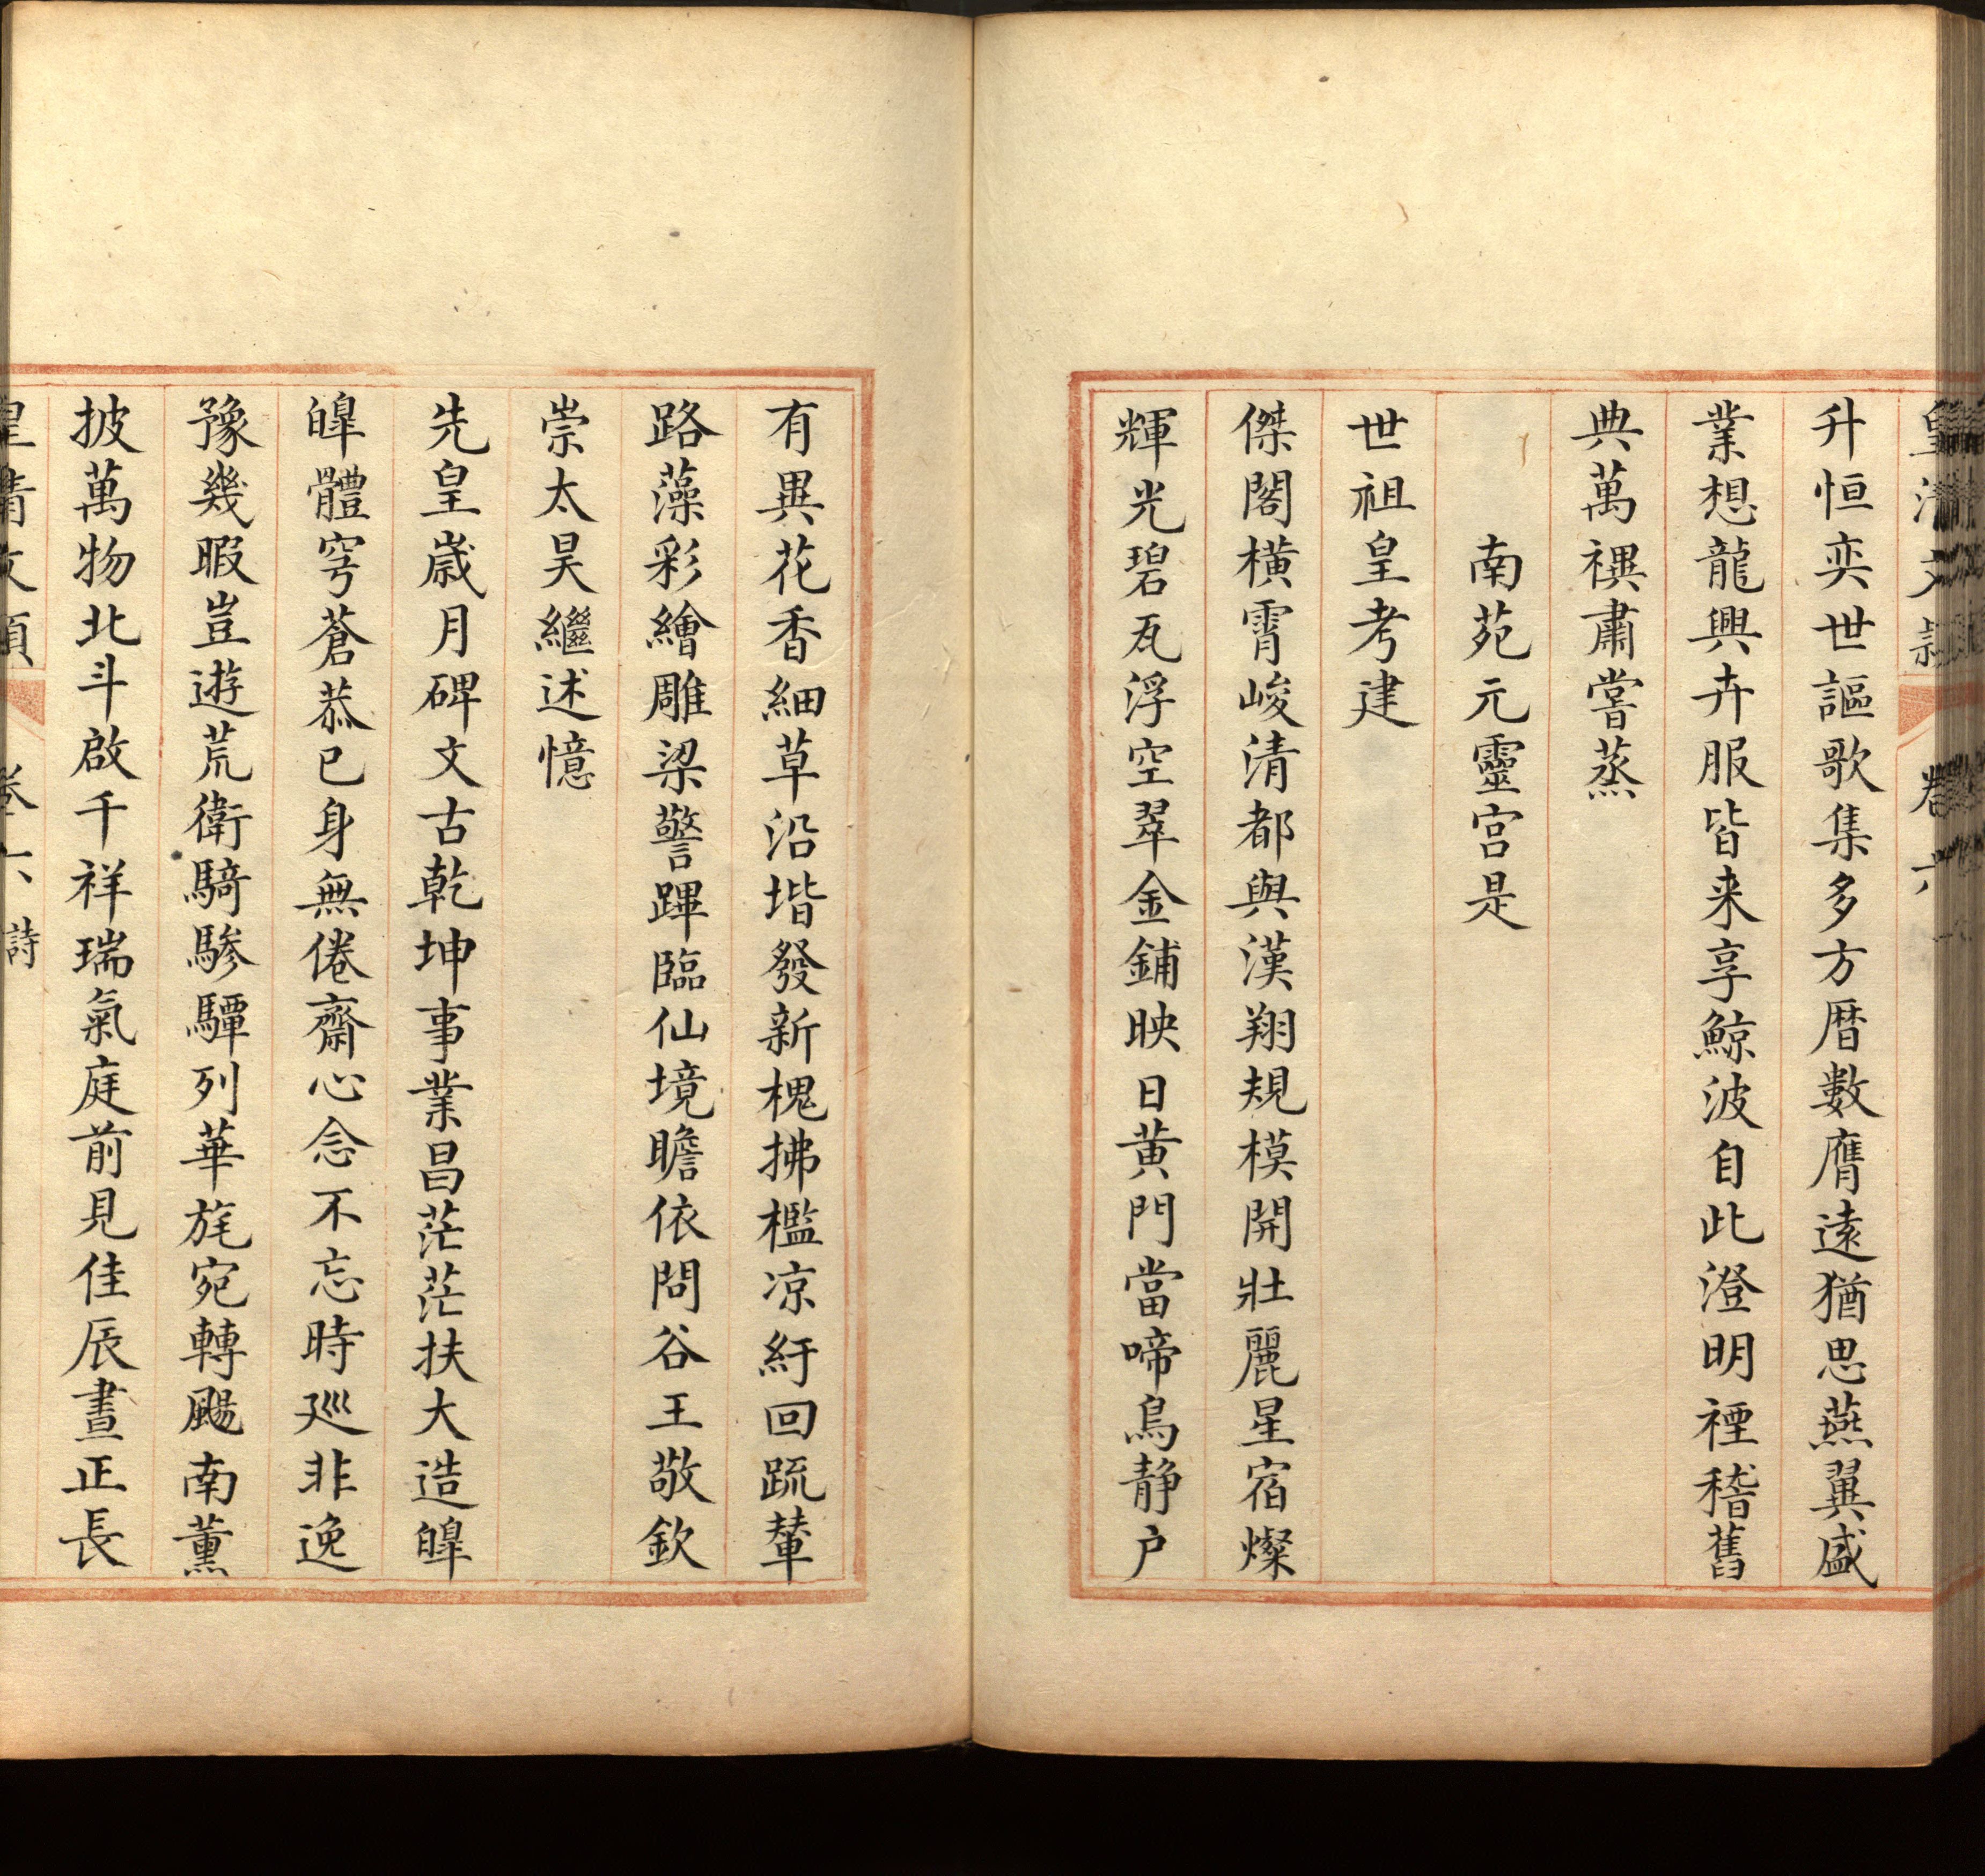 皇清文潁 卷六
升恒奕世謳歌集多方曆數膺遠猶思燕翼盛
業想龍興卉服皆来享鯨波自此澄明禋稽舊
典萬禩肅嘗蒸
南苑元靈宫是
世祖皇考建
傑閣橫霄峻清都與漢翔規模開壯麗星宿燦
輝光碧瓦浮空翠金鋪映日黄門當啼鳥静户
有異花香細草沿堦發新槐拂檻凉紆回疏輦
路藻彩繪雕梁警蹕臨仙境瞻依問谷王敬欽
崇太昊繼述憶
先皇嵗月碑文古乾坤事業昌茫茫扶大造皥
皥體穹蒼恭已身無倦齋心念不忘時廵非逸
豫幾暇豈遊荒衛騎驂驔列華旄宛轉颺南薰
披萬物北斗啟千祥瑞氣庭前見佳辰晝正長
皇清文潁 卷六 詩